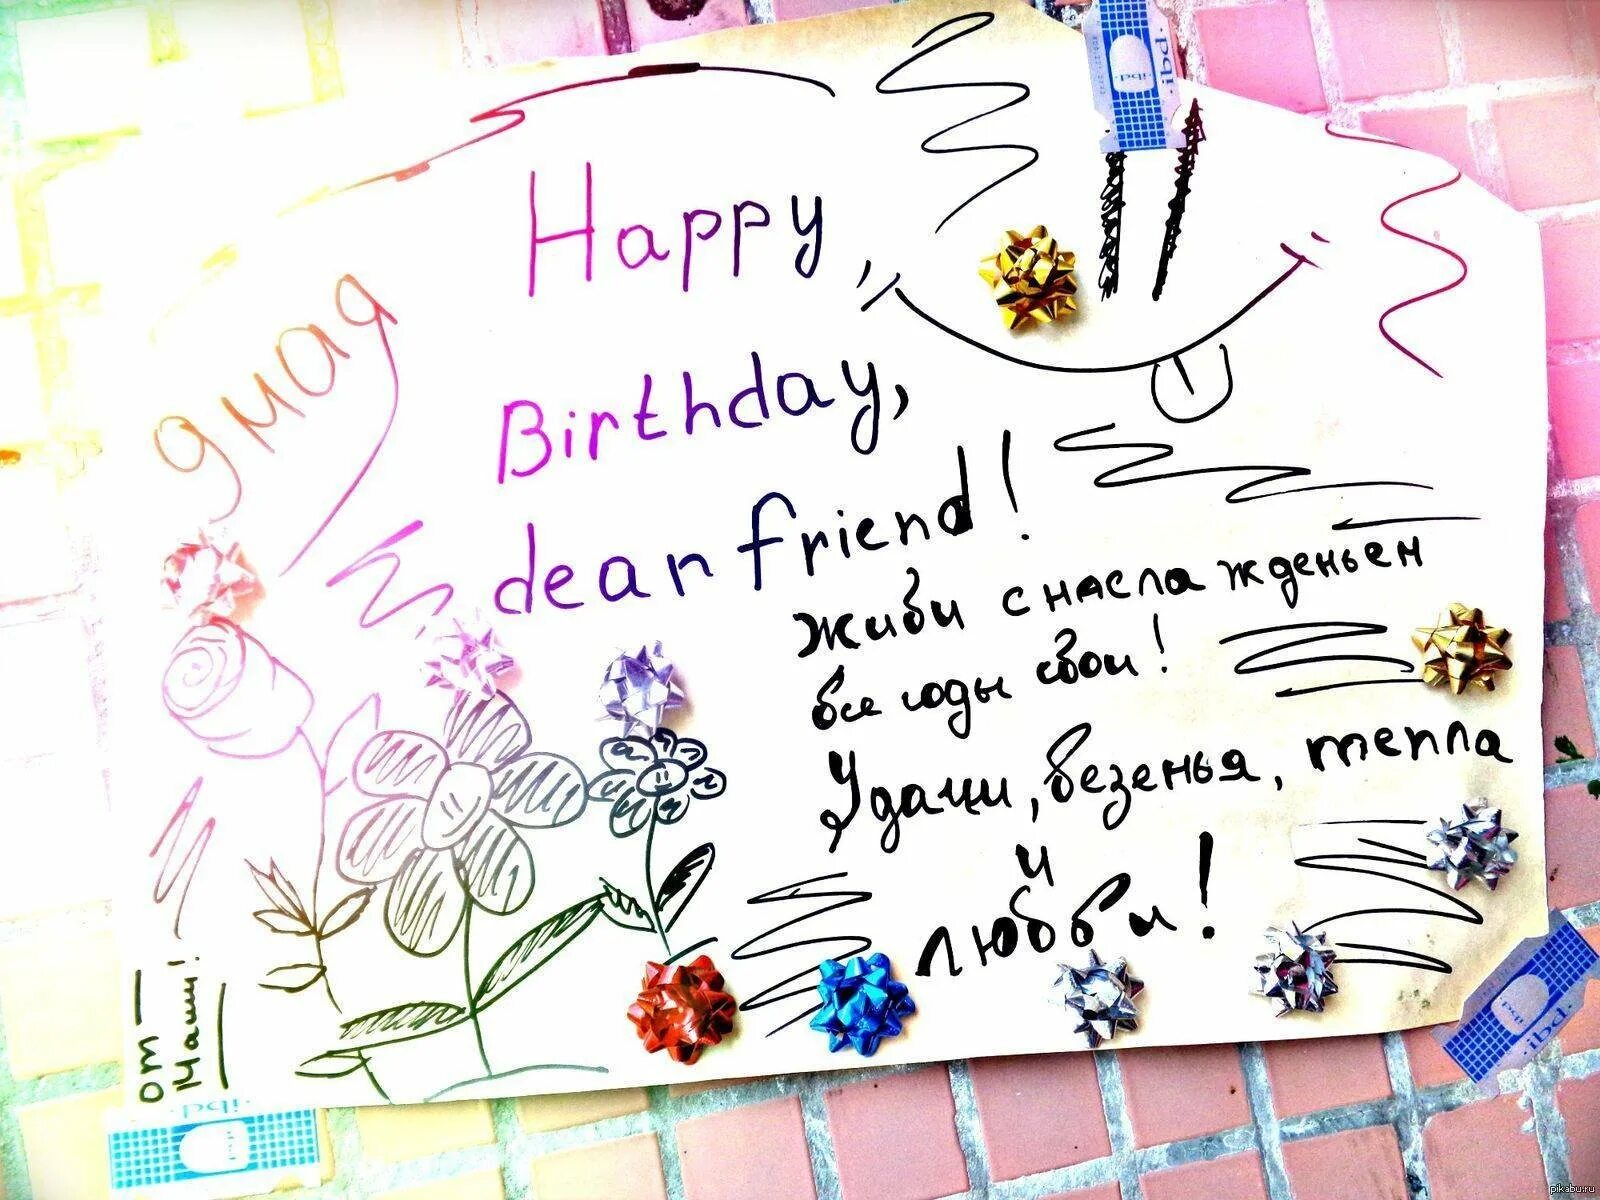 9 мая
Happy
Birthday,
dear friend!
Живи с наслажденьем
все годы свои!
Удачи, везенья, тепла
и
любви!
от
Маши!
ibd
ibd
ibd
ibd
ibd
ibd
pikabu.ru